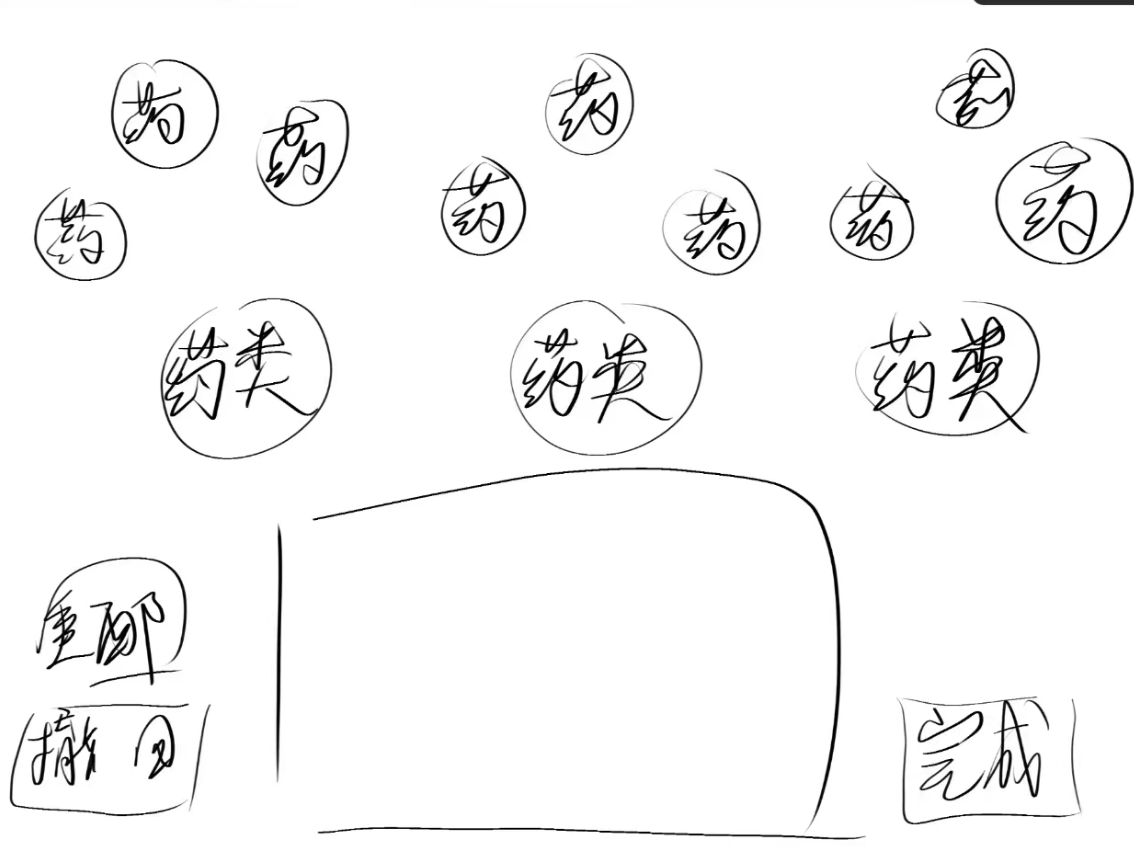 药 药 药
药 药 药 药 药 药
药类 药类 药类
重配
撤回 完成